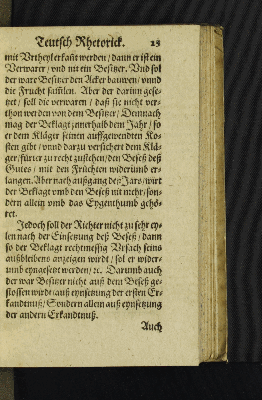 Teutsch Rhetorick. 23
mit Vrtheyl erkañt werden / dann er ist ein
Verwarer / vnd nit ein Besitzer. Vnd sol
der ware Besitzer den Acker bauwen / vnnd
die Frucht samlen. Aber der darinn gese-
tzet / soll die verwaren / daß sie nicht ver-
thon werden von dem Besitzer / Dennach
mag der Beklagt innerhalb dem Jahr / so
er dem Kläger seinen auffgewendten Ko-
sten gibt / vnnd darzu versichert dem Klä-
ger / fürter zu recht zustehen / den Beseß deß
Gutes / mit den Früchten widerumb er-
langen. Aber nach außgang deß Jars / wirt
der Beklagt vmb den Beseß nit mehr / son-
dern allein vmb das Eygenthumb gehö-
ret.
Jedoch soll der Richter nicht zu sehr ey-
len nach der Einsetzung deß Beseß / dann
so der Beklagt rechtmessig Vrsach seins
außbleibens anzeigen wirdt / sol er wider-
umb eyngesetzt werden / ꝛc. Darumb auch
der war Besitzer nicht auß dem Beseß ge-
stossen wirdt / auß eynsetzung der ersten Er-
kandtnuß / Sondern allein auß eynsetzung
der andern Erkandtnuß.
Auch